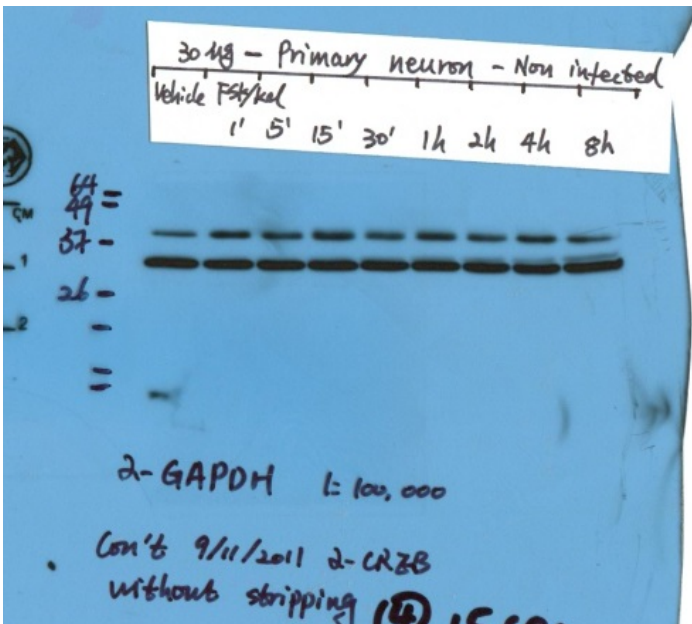 30 μg - Primary neuron - Non infected
Vehicle FSK/kcl
1' 5' 15' 30' 1h 2h 4h 8h
64
49
37
26
CM
1
2
α-GAPDH 1:100,000
Con't 9/11/2011 α-CREB
without stripping
④ 15